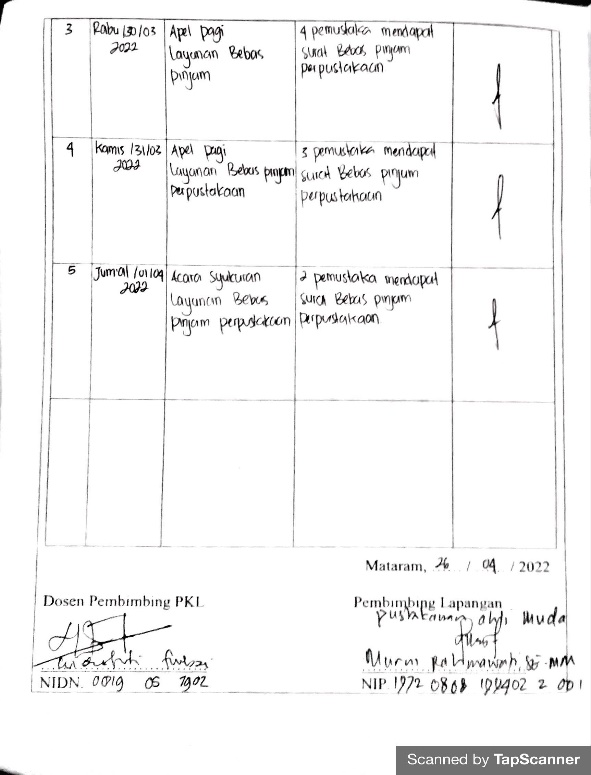 3
Rabu /30/03
2022
Apel pagi
Layanan Bebas
pinjam
4 pemustaka mendapat
surat Bebas pinjam
perpustakaan
4
Kamis /31/03
2022
Apel pagi
Layanan Bebas pinjam
perpustakaan
3 pemustaka mendapat
surat Bebas pinjam
perpustakaan
5
Jum'at /01/04
2022
Acara syukuran
Layanan Bebas
pinjam perpustakaan
2 pemustaka mendapat
surat Bebas pinjam
perpustakaan
Mataram, 26 / 04 / 2022
Dosen Pembimbing PKL
NIDN. 0019 05 7902
Pembimbing Lapangan
pustakawan ahli muda
Murni Rahmawati, SE. MM
NIP. 1972 0808 199402 2 001
Scanned by TapScanner